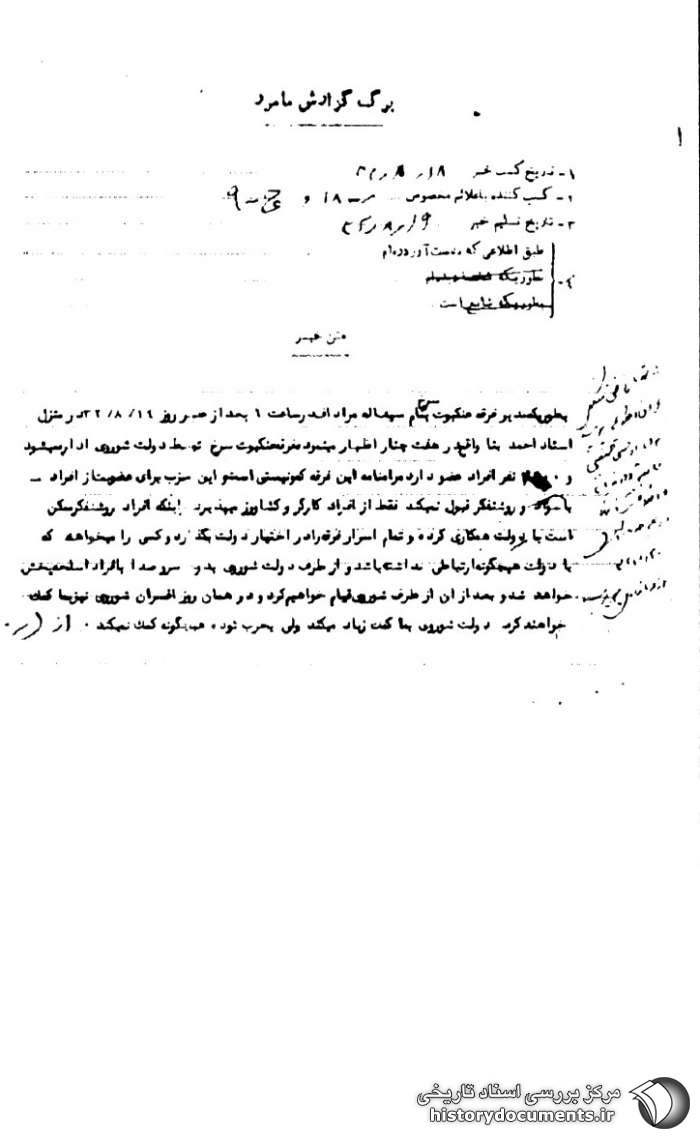 برگ گزارش مامور
۱
۱- تاریخ کسب خبر ۱۸ر۸ر۳۲
۲- کسب کننده باعلائم مخصوص ۱۸ و ۹
۳- تاریخ تسلیم خبر ۱۹ر۸ر۳۲
طبق اطلاعی که بدست آورده‌ام
۴- بطوریکه
بطوریکه شایع است
متن خبر
بطوریکه مدیر فرقه عنکبوت سرخ بنام سیف‌اله مراد افد رساعت ۶ بعد از عصر روز ۳۲/۸/۱۶ در منزل
استاد احمد بنا واقع در هفت چنار اظهار مینمود فرقه عنکبوت سرخ توسط دولت شوروی اداره میشود
و نفر افراد عضو دارد مرامنامه این فرقه کمونیستی است و این حزب برای عضویت از افراد
با سواد و روشنفکر قبول نمیکند فقط از افراد کارگر و کشاورز میپذیرد اینکه افراد روشنفکر ممکن
است با دولت همکاری کرده و تمام اسرار فرقه را در اختیار دولت بگذارد و کسی را میخواهند که
با دولت هیچگونه ارتباطی نداشته باشد و از طرف دولت شوروی بدون سر و صدا بافراد اسلحه پخش
خواهد شد و بعد از آن از طرف شوروی قیام خواهیم کرد و در همان روز افسران شوروی نیز بما کمک
خواهند کرد دولت شوروی بما کمک زیاد میکند ولی بحزب توده هیچگونه کمک نمیکند
مرکز بررسی اسناد تاریخی
historydocuments.ir